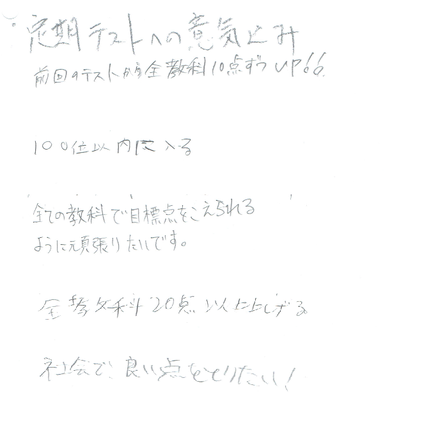 定期テストへの意気込み
前回のテストから全教科10点ずつUP!!
100位以内に入る
全ての教科で目標点をこえられる
ように頑張りたいです。
全教科20点以上上げる
社会で良い点をとりたい!